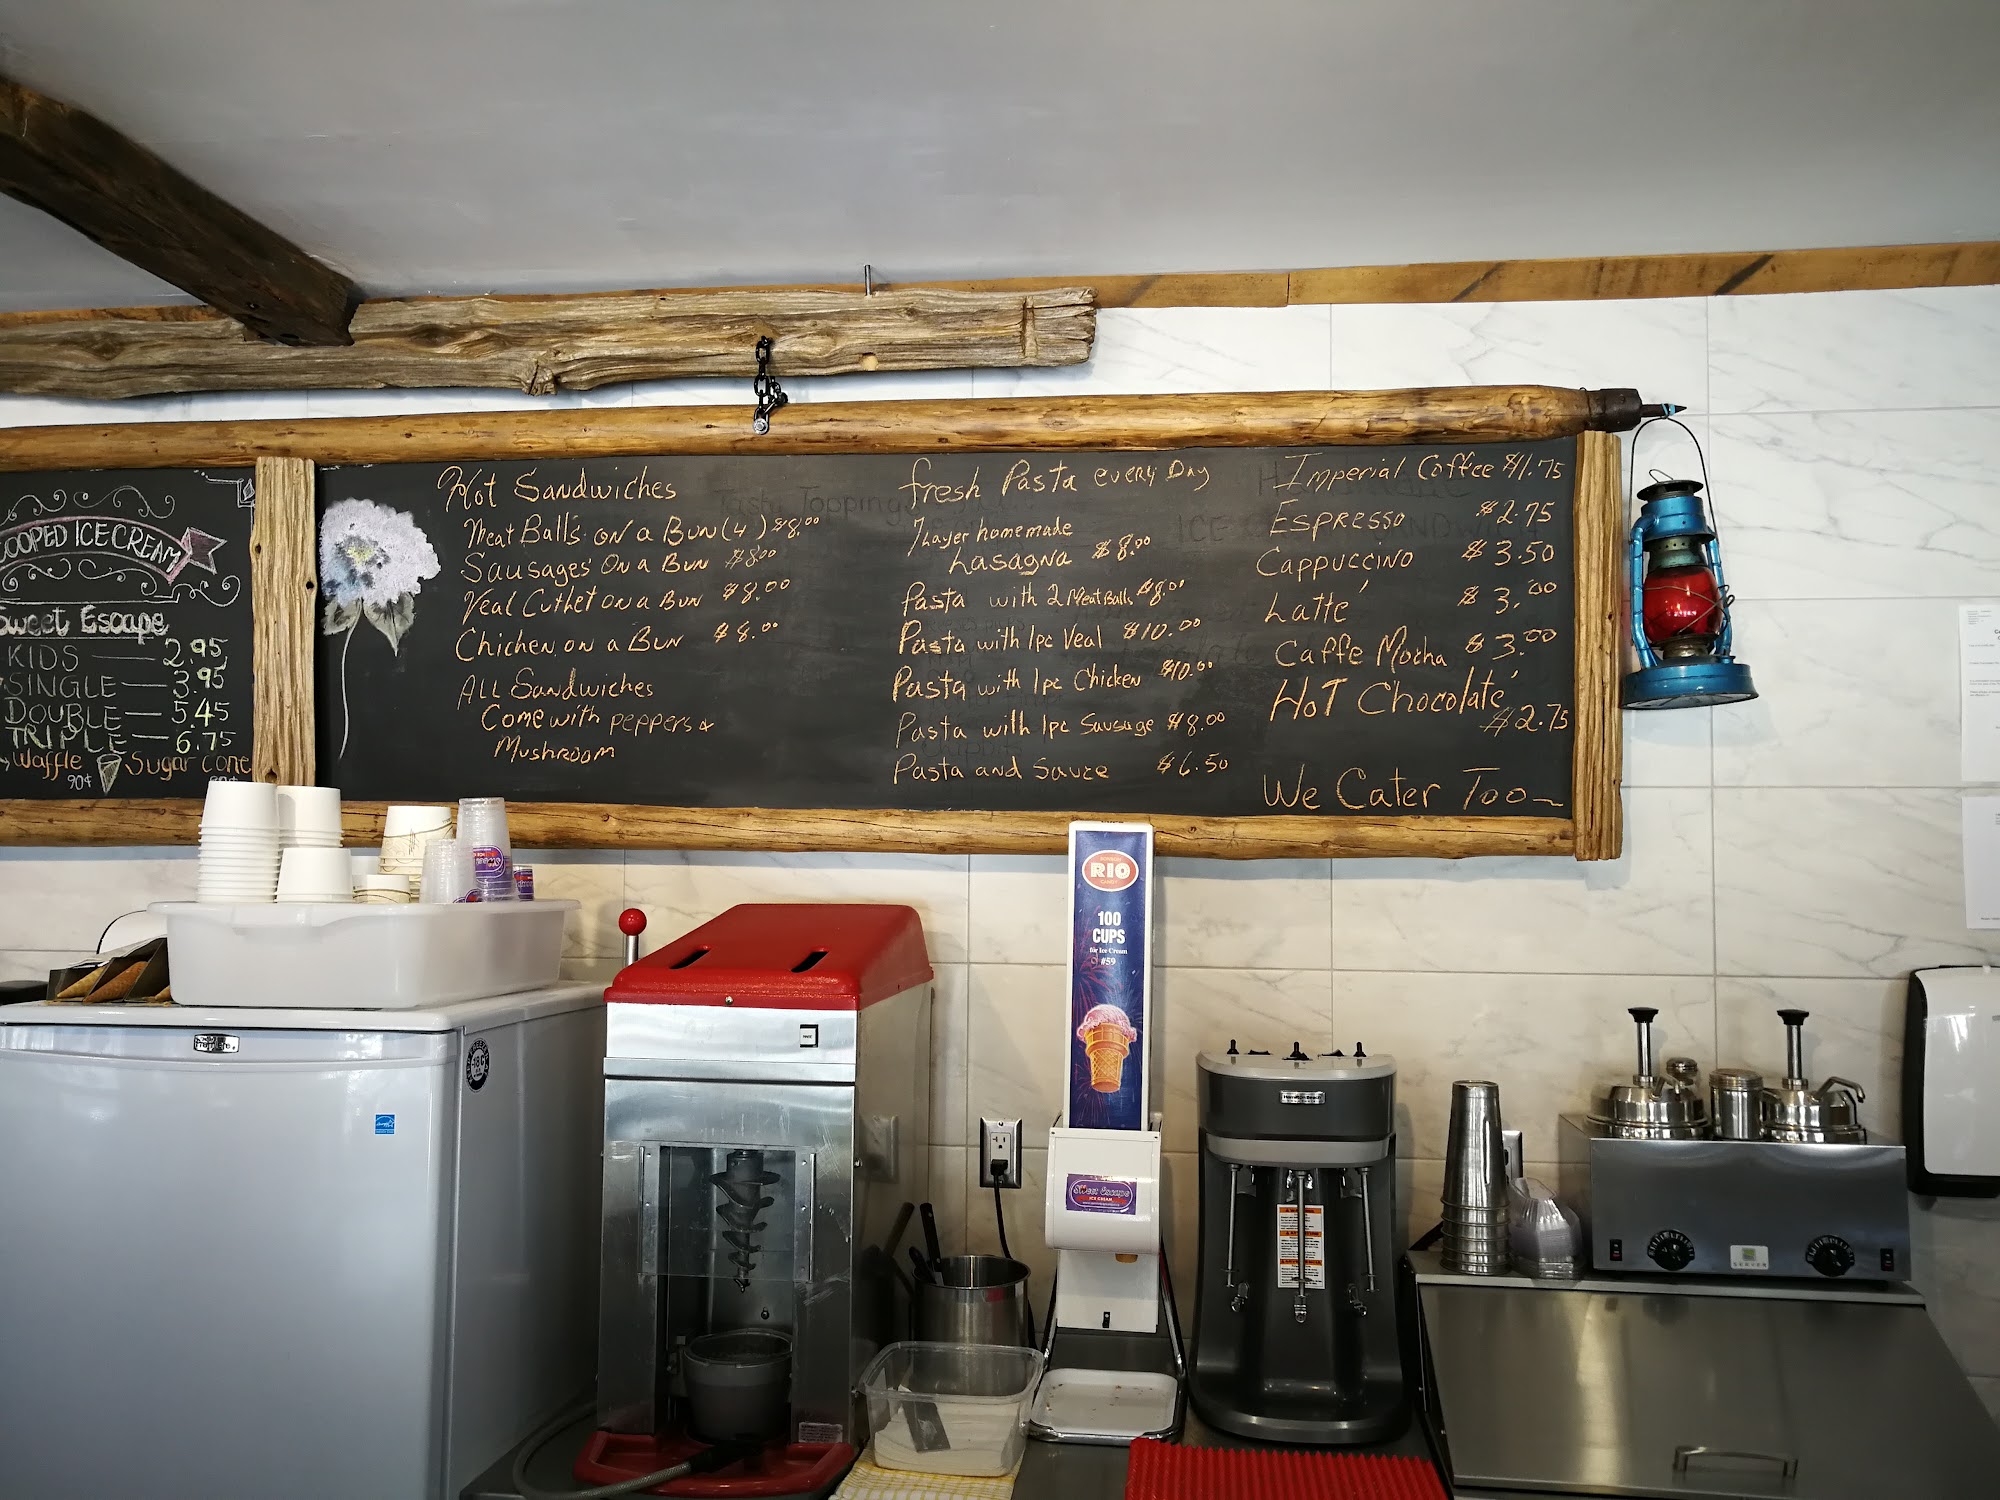 SCOOPED ICE CREAM
Sweet Escape
KIDS — 2.95
SINGLE — 3.95
DOUBLE — 5.45
TRIPLE — 6.75
Waffle Sugar cone
90¢
Hot Sandwiches
Meat Balls on a Bun (4) $8.00
Sausages On a Bun $8.00
Veal Cutlet on a Bun $8.00
Chicken on a Bun $8.00
ALL Sandwiches
Come with peppers &
Mushroom
fresh Pasta every Day
7 Layer homemade
Lasagna $8.00
Pasta with 2 Meat Balls $8.00
Pasta with 1pc Veal $10.00
Pasta with 1pc Chicken $10.00
Pasta with 1pc Sausage $8.00
Pasta and Sauce $6.50
Imperial Coffee $1.75
Espresso $2.75
Cappuccino $3.50
Latte' $3.00
Caffe Mocha $3.00
HoT Chocolate'
$2.75
We Cater Too
RIO
100
CUPS
for Ice Cream
#59
Sweet Escape
ICE CREAM
Hamilton Beach
SERVER